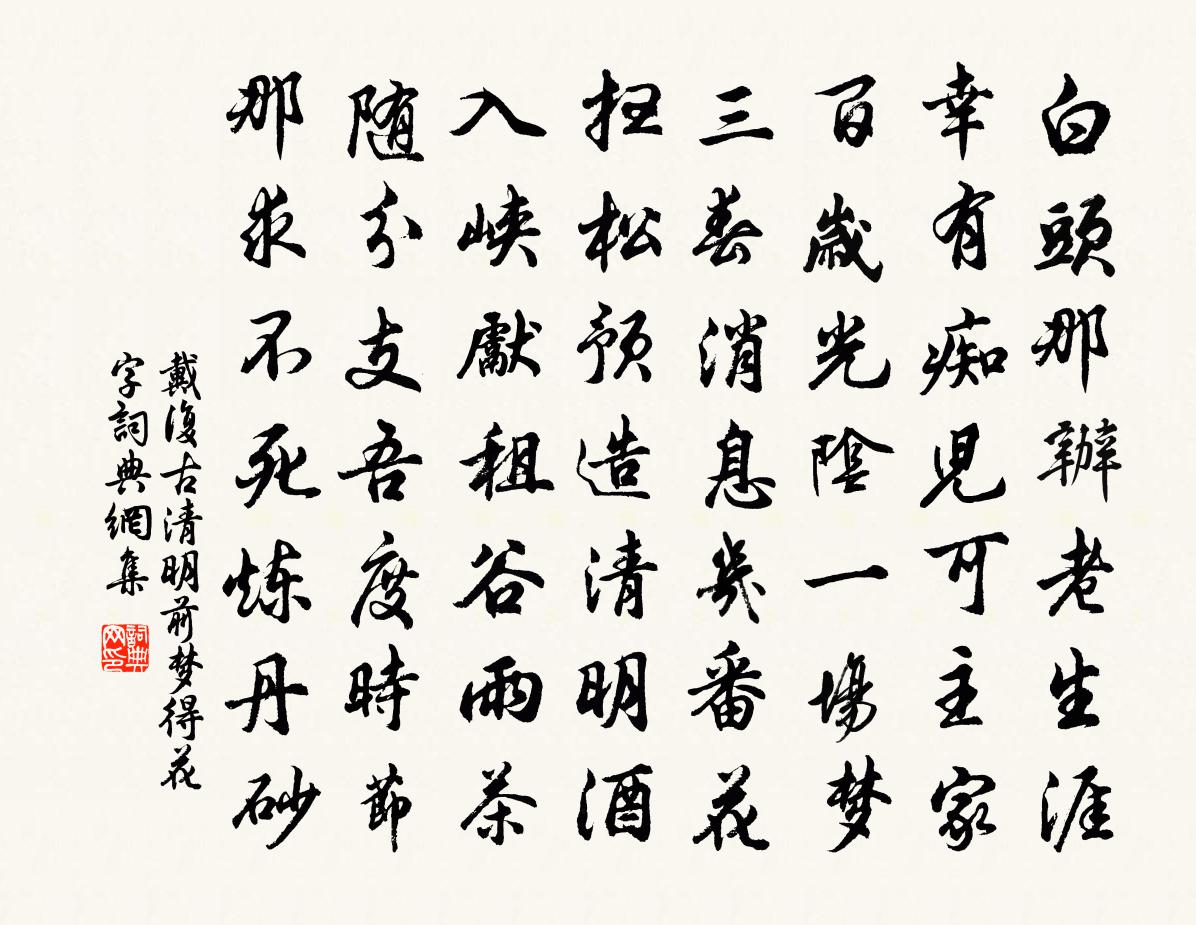 白頭那辦老生涯
幸有痴兒可主家
百歲光陰一場梦
三春消息幾番花
扫松预造清明酒
入峡獻租谷雨茶
随分支吾度時節
那求不死炼丹砂
戴復古清明前梦得花
字詞典網集
詞典
网印